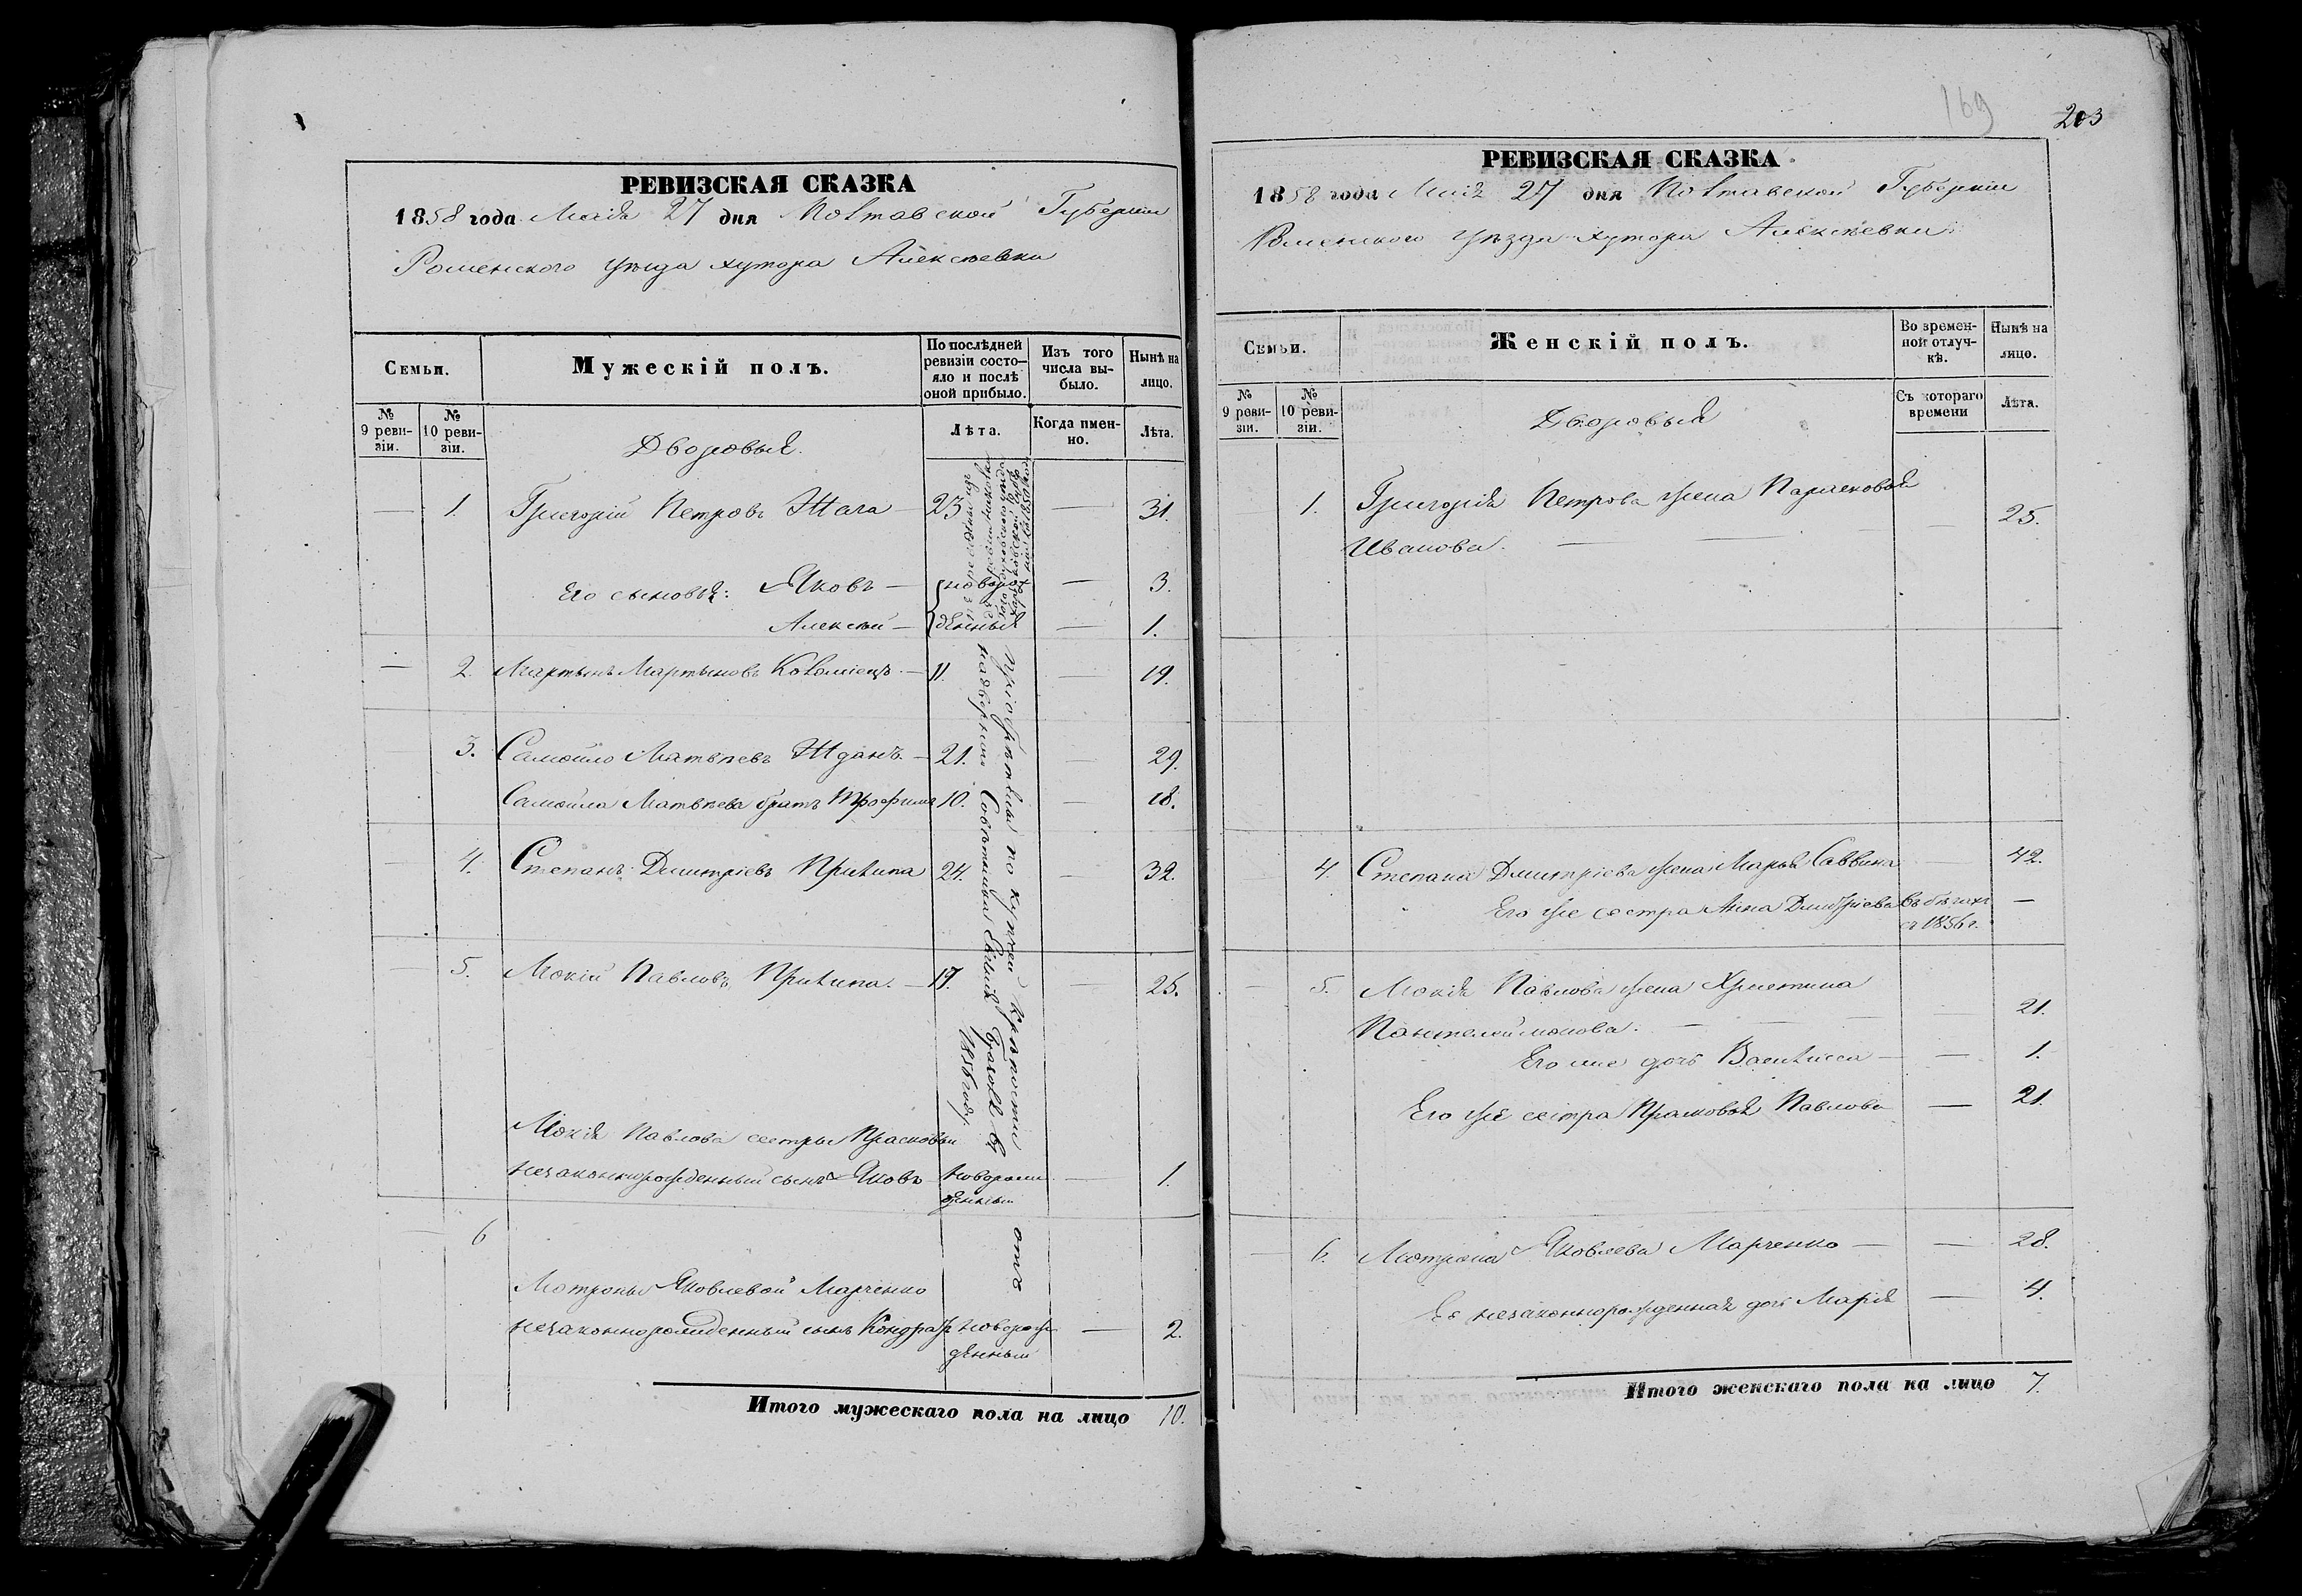 РЕВИЗСКАЯ СКАЗКА
1858 года Маія 27 дня Полтавской Губерніи
Роменского уѣзда хутора Алексѣевки
Семьи.
Мужескій полъ.
По послѣдней ревизіи состояло и послѣ оной прибыло.
Изъ того числа выбыло.
Нынѣ на лицо.
№ 9 ревизіи.
№ 10 ревизіи.
Лѣта.
Когда именно.
Лѣта.
Дворовыя.
— 1. Григорій Петровъ — 23 — 31.
Его сыновья: Яковъ — новорож — 3.
Алексѣй — денныя — 1.
— 2. Мартынъ Мартыновъ Коломіецъ — 11. — 19.
3. Самойло Матвѣевъ Жданъ. — 21. — 29.
Самойла Матвѣева братъ Трофимъ 10. — 18.
4. Степанъ Дмитріевъ Прилипа 24. — 32.
5. Мокій Павловъ Прилипа. — 17. — 25.
Мокія Павлова сестры Прасковьи
незаконнорожденный сынъ Яковъ новорож — 1.
денный
6
Мотроны Яковлевой Марченко
незаконнорожденный сынъ Кондратъ новорож — 2.
денный
пріобрѣтены по купчей крѣпости отъ
надворного Совѣтника въ
185 году
Итого мужескаго пола на лицо 10.
169
203
РЕВИЗСКАЯ СКАЗКА
1858 года Маія 27 дня Полтавской Губерніи
Роменского уѣзда хутора Алексѣевки
Семьи.
Женскій полъ.
Во временной отлучкѣ.
Нынѣ на лицо.
№ 9 ревизіи.
№ 10 ревизіи.
Съ котораго времени
Лѣта.
Дворовыя
1. Григорія Петрова жена Парасковья
Иванова. — 25.
4. Степана Дмитріева жена Марья Саввина — 42.
Его же сестра Анна Дмитріева въ бѣгахъ —
съ 1856 г.
— 5. Мокія Павлова жена Христина
Пантелеймонова. — 21.
Его же дочь Василиса — 1.
Его же сестра Прасковья Павлова — 21.
— 6. Мотрона Яковлева Марченко — 28.
Ея незаконнорожденная дочь Марія — 4.
Итого женскаго пола на лицо 7.